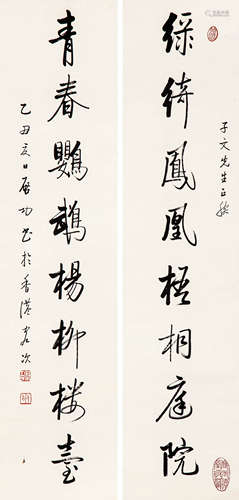 綠綺鳳凰梧桐庭院
子文先生正腕
青春鸚鵡楊柳樓臺
乙丑夏日啟功書於香港客次